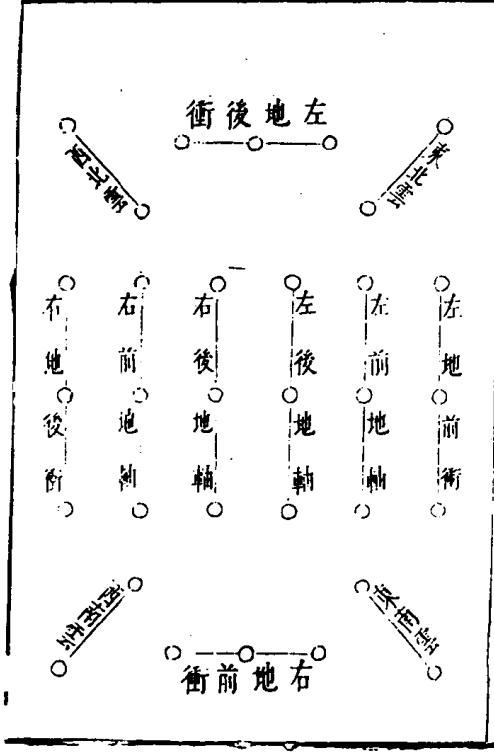 左地後衝
東北雲
西北雲
左地前衝
左前地軸
左後地軸
右後地軸
右前地軸
右地後衝
東南雲
西南雲
右地前衝